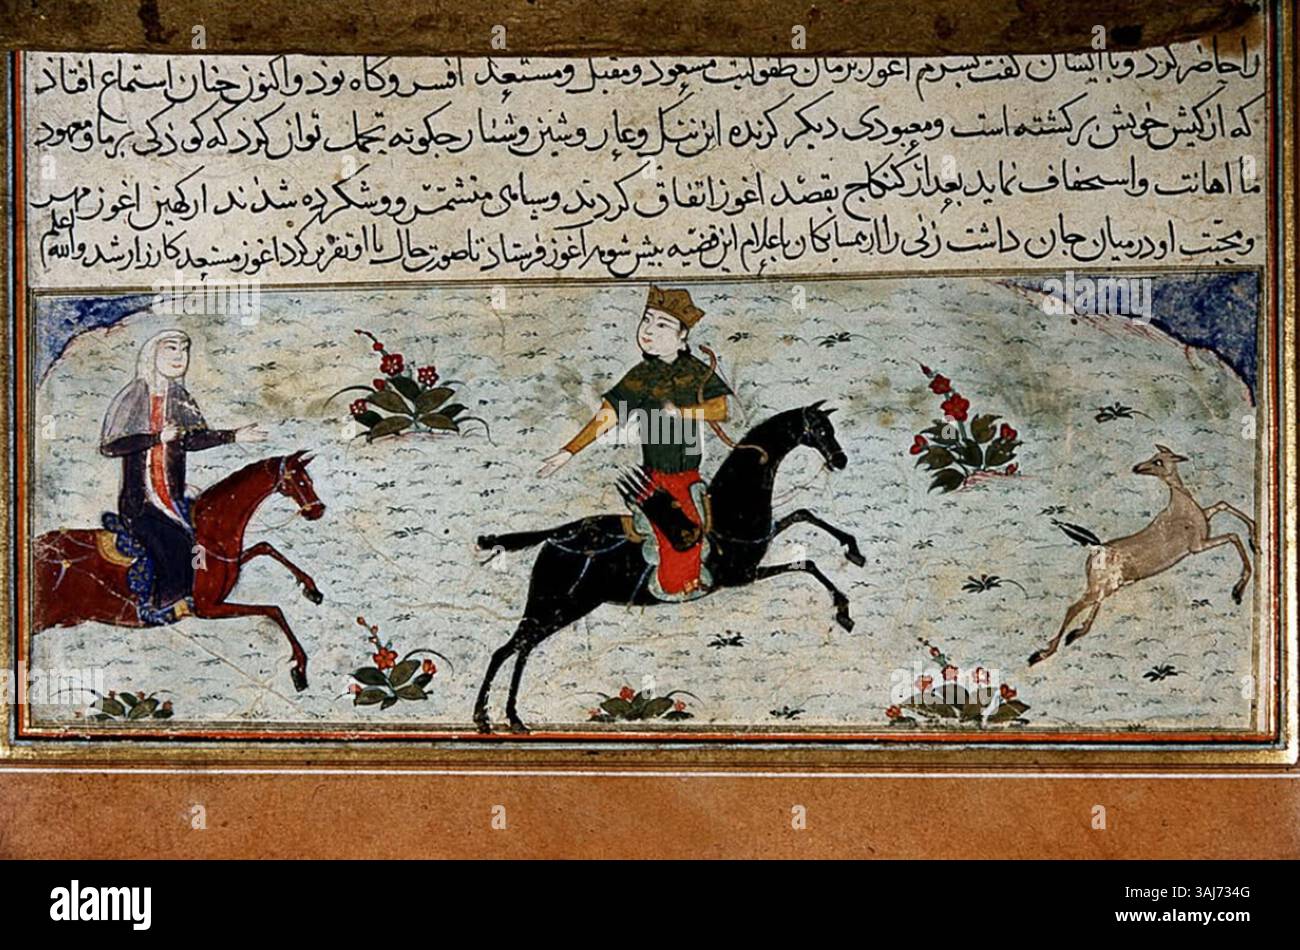 را حاضر کرد و با ایشان گفت بسرم اغوز بزمان طفولیت مسعود و مقبل و مستعد افسر و کاه بود و اکنون جنان استماع افتاد
که از کیش خویش برکشته است و معبودی دیکر کزیده این ننک و عار و شین و شنار جکونه تحمل توان کرد که کوذکی بر ما و معبود
ما اهانت و استخفاف نماید بعد از کنکاج بقصد اغوز اتفاق کردند و سپاهی منتشمر و وشکرده شدند ارکهین اغوز مهر
و محبت او در میان جان داشت زنی را از همسایکان باعلام این قضیه بیش شوهر اغوز فرستاد تا صورت حال با او تقریر کرد اغوز مستعد کارزار شد والله اعلم
alamy
Image ID: 3AJ734G
www.alamy.com